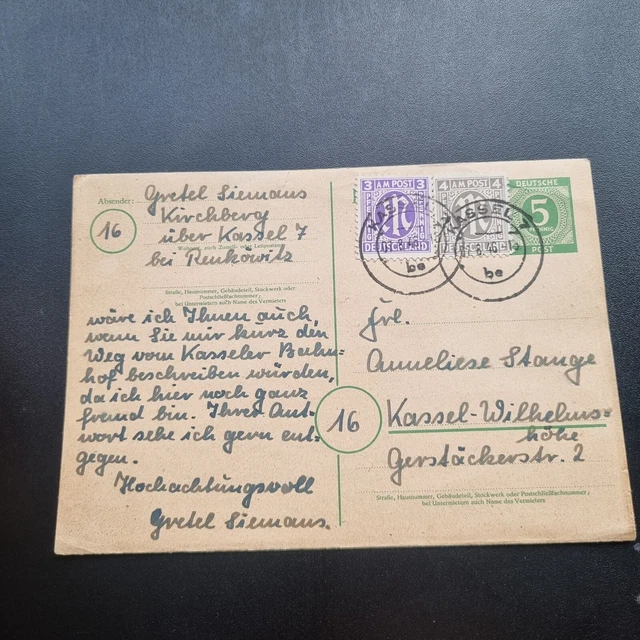 Absender:
Gretel Siemans
Kirchberg
über Kassel 7
bei Renkowitz
16
Straße, Hausnummer, Gebäudeteil, Stockwerk oder
Postschließfachnummer,
bei Untermietern auch Name des Vermieters
wäre ich Ihnen auch,
wenn Sie mir kurz den
Weg vom Kasseler Bahn=
hof beschreiben würden,
da ich hier noch ganz
fremd bin. Ihrer Ant-
wort sehe ich gern ent-
gegen.
Hochachtungsvoll
Gretel Siemans.
3 AM POST 3
DEUTSCHLAND
4 AM POST 4
DEUTSCHLAND
DEUTSCHE
5
PFENNIG
POST
KASSEL 7
be
KASSEL 7
be
Frl.
Anneliese Stange
16
Kassel-Wilhelms=
höhe
Gerstäckerstr. 2
Straße, Hausnummer, Gebäudeteil, Stockwerk oder Postschließfachnummer;
bei Untermietern auch Name des Vermieters